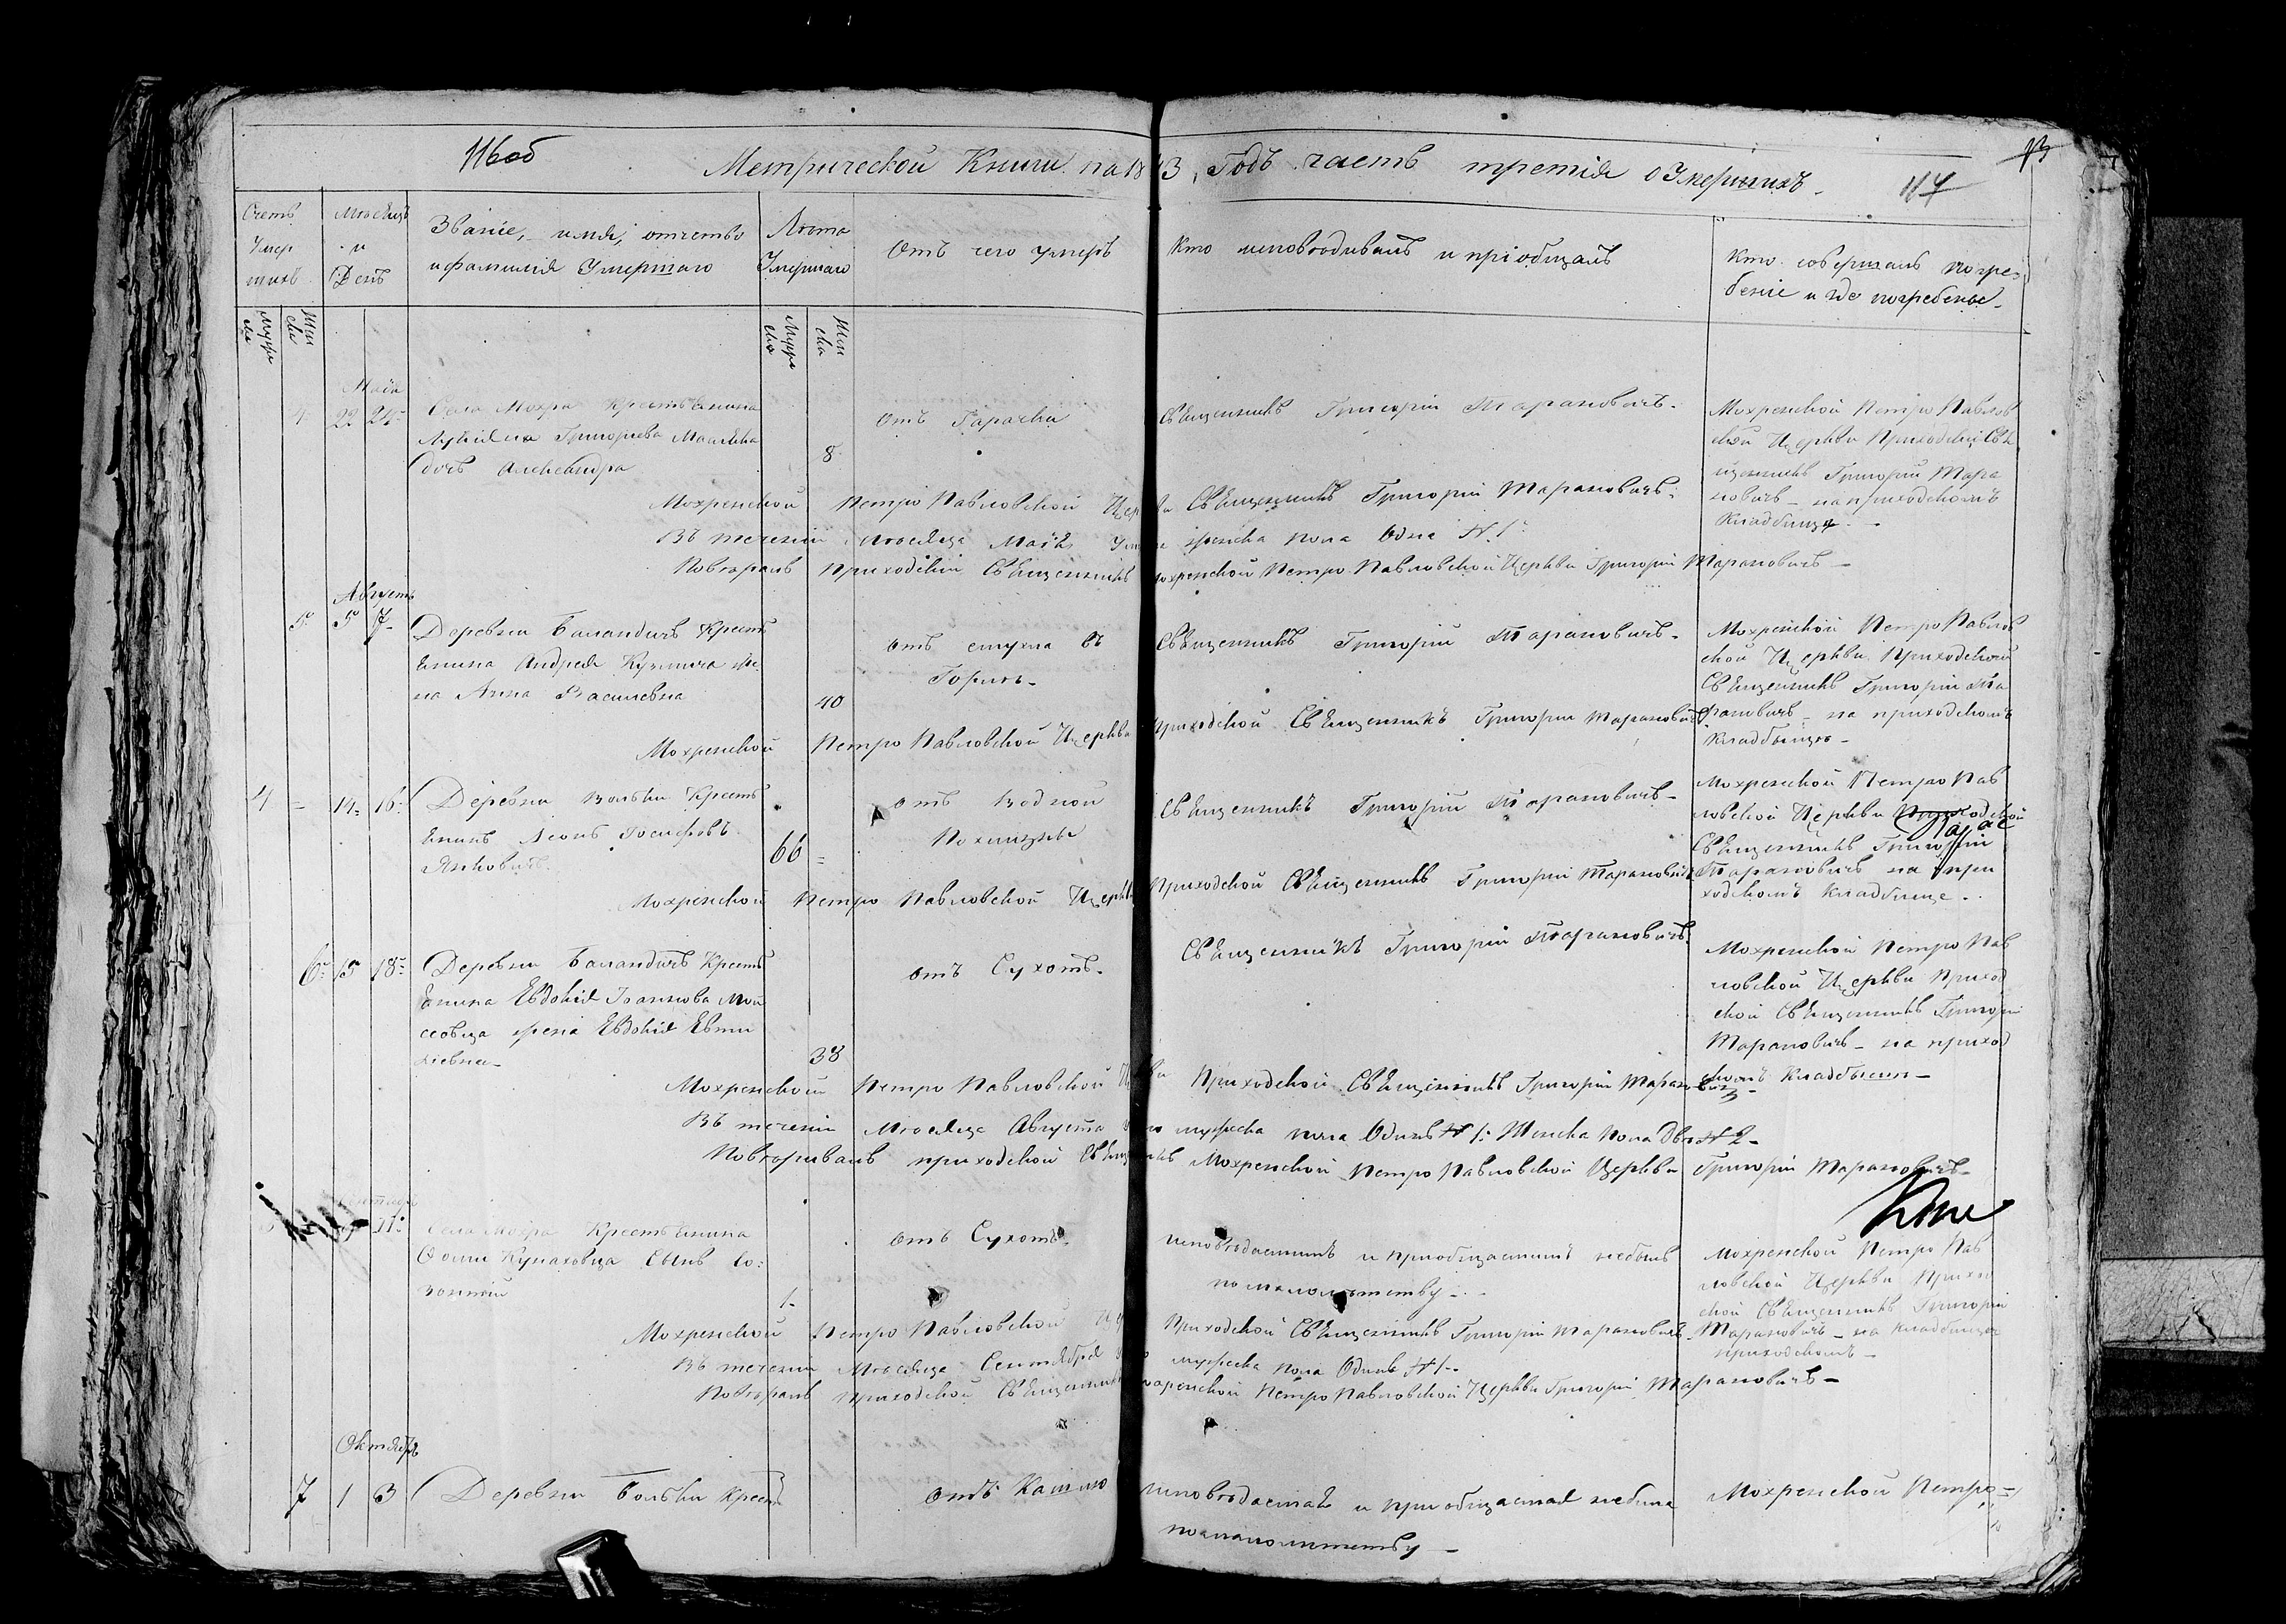 116 об
Метрической Книги на 18 3, Годъ часть третія о Умершихъ.
117
Счетъ Умер шихъ
Мѣсяцъ и День
Званіе, имя, отчество
и фамилія Умершаго
Лѣта
Умершаго
Отъ чего умеръ
Кто исповѣдывалъ и пріобщалъ
Кто совершалъ погре-
беніе и где погребены
Муже ска
Жен ска
Муже ска
Жен ска
Маія
22 24
Села Мохра Крестьянина
Григорьева
дочь Александра
8
Отъ Гарачки
Священникъ Григорій Тарановичъ.
Мохренской Петро Павлов
ской Церкви Приходскій Свя
щенникъ Григорій Тара
новичъ - на приходскомъ
Кладбище.
Мохренской Петро Павловской Церкви Священникъ Григорій Тарановичъ.
Въ теченіи Мѣсяца Маія женска пола Одна № 1.
Повѣрялъ Приходскій Священникъ Мохренской Петро Павловской Церкви Григорій Тарановичъ -
Августъ
5 5 7
Деревни Баландичъ Крестъ
янина Андрея Кузмича же
на Анна Василевна
40
отъ
Священникъ Григорій Тарановичъ.
Мохренской Петро Павлов
ской Церкви Приходской
Священникъ Григорій Та
рановичъ - на приходскомъ
Кладбище -
Мохренской Петро Павловской Церкви Приходской Священникъ Григорій Тарановичъ
4 - 14 16
Деревни Крестъ
янинъ Леонъ Іосифовъ
Янковичъ.
66
отъ водной
Священникъ Григорій Тарановичъ -
Мохренской Петро Пав
ловской Церкви Приходской
Священникъ Григорій
Тарановичъ на при
ходскомъ Кладбище.
Мохренской Петро Павловской Церкви Приходской Священникъ Григорій Тарановичъ
6 15 18
Деревни Баландичъ Крестъ
янина Іоаннова Мой
сеовца жена Евдокія Евти
хіевна
38
отъ Сухотъ.
Священникъ Григорій Тарановичъ.
Мохренской Петро Пав
ловской Церкви Приход
ской Священникъ Григорій
Тарановичъ - на приход
скомъ Кладбище -
Мохренской Петро Павловской Церкви Приходской Священникъ Григорій Тарановичъ
Въ теченіи Мѣсяца Августа мужеска пола Одинъ № 1. Женска пола Две № 2 -
Повѣривалъ приходской Священникъ Мохренской Петро Павловской Церкви Григорій Тарановичъ -
11
Села Мохра Крестьянина
Фомы Кунаховца Сынъ Со
зонтій
1
отъ Сухотъ
исповѣдаемымъ и пріобщаемымъ небылъ
по малолетству -
Мохренской Петро Пав
ловской Церкви Прихо
ской Священникъ Григорій
Тарановичъ - на кладбище
приходскомъ -
Мохренской Петро Павловской Церкви Приходской Священникъ Григорій Тарановичъ
Въ теченіи Мѣсяца Сентября мужеска пола Одинъ № 1.
Повѣрялъ Приходской Священникъ Мохренской Петро Павловской Церкви Григорій Тарановичъ -
Октябръ
7 1 3
Деревни Крестъ
отъ Кашлю
исповѣдаемая и пріобщаемая небыла
по малолетству -
Мохренской Петро-